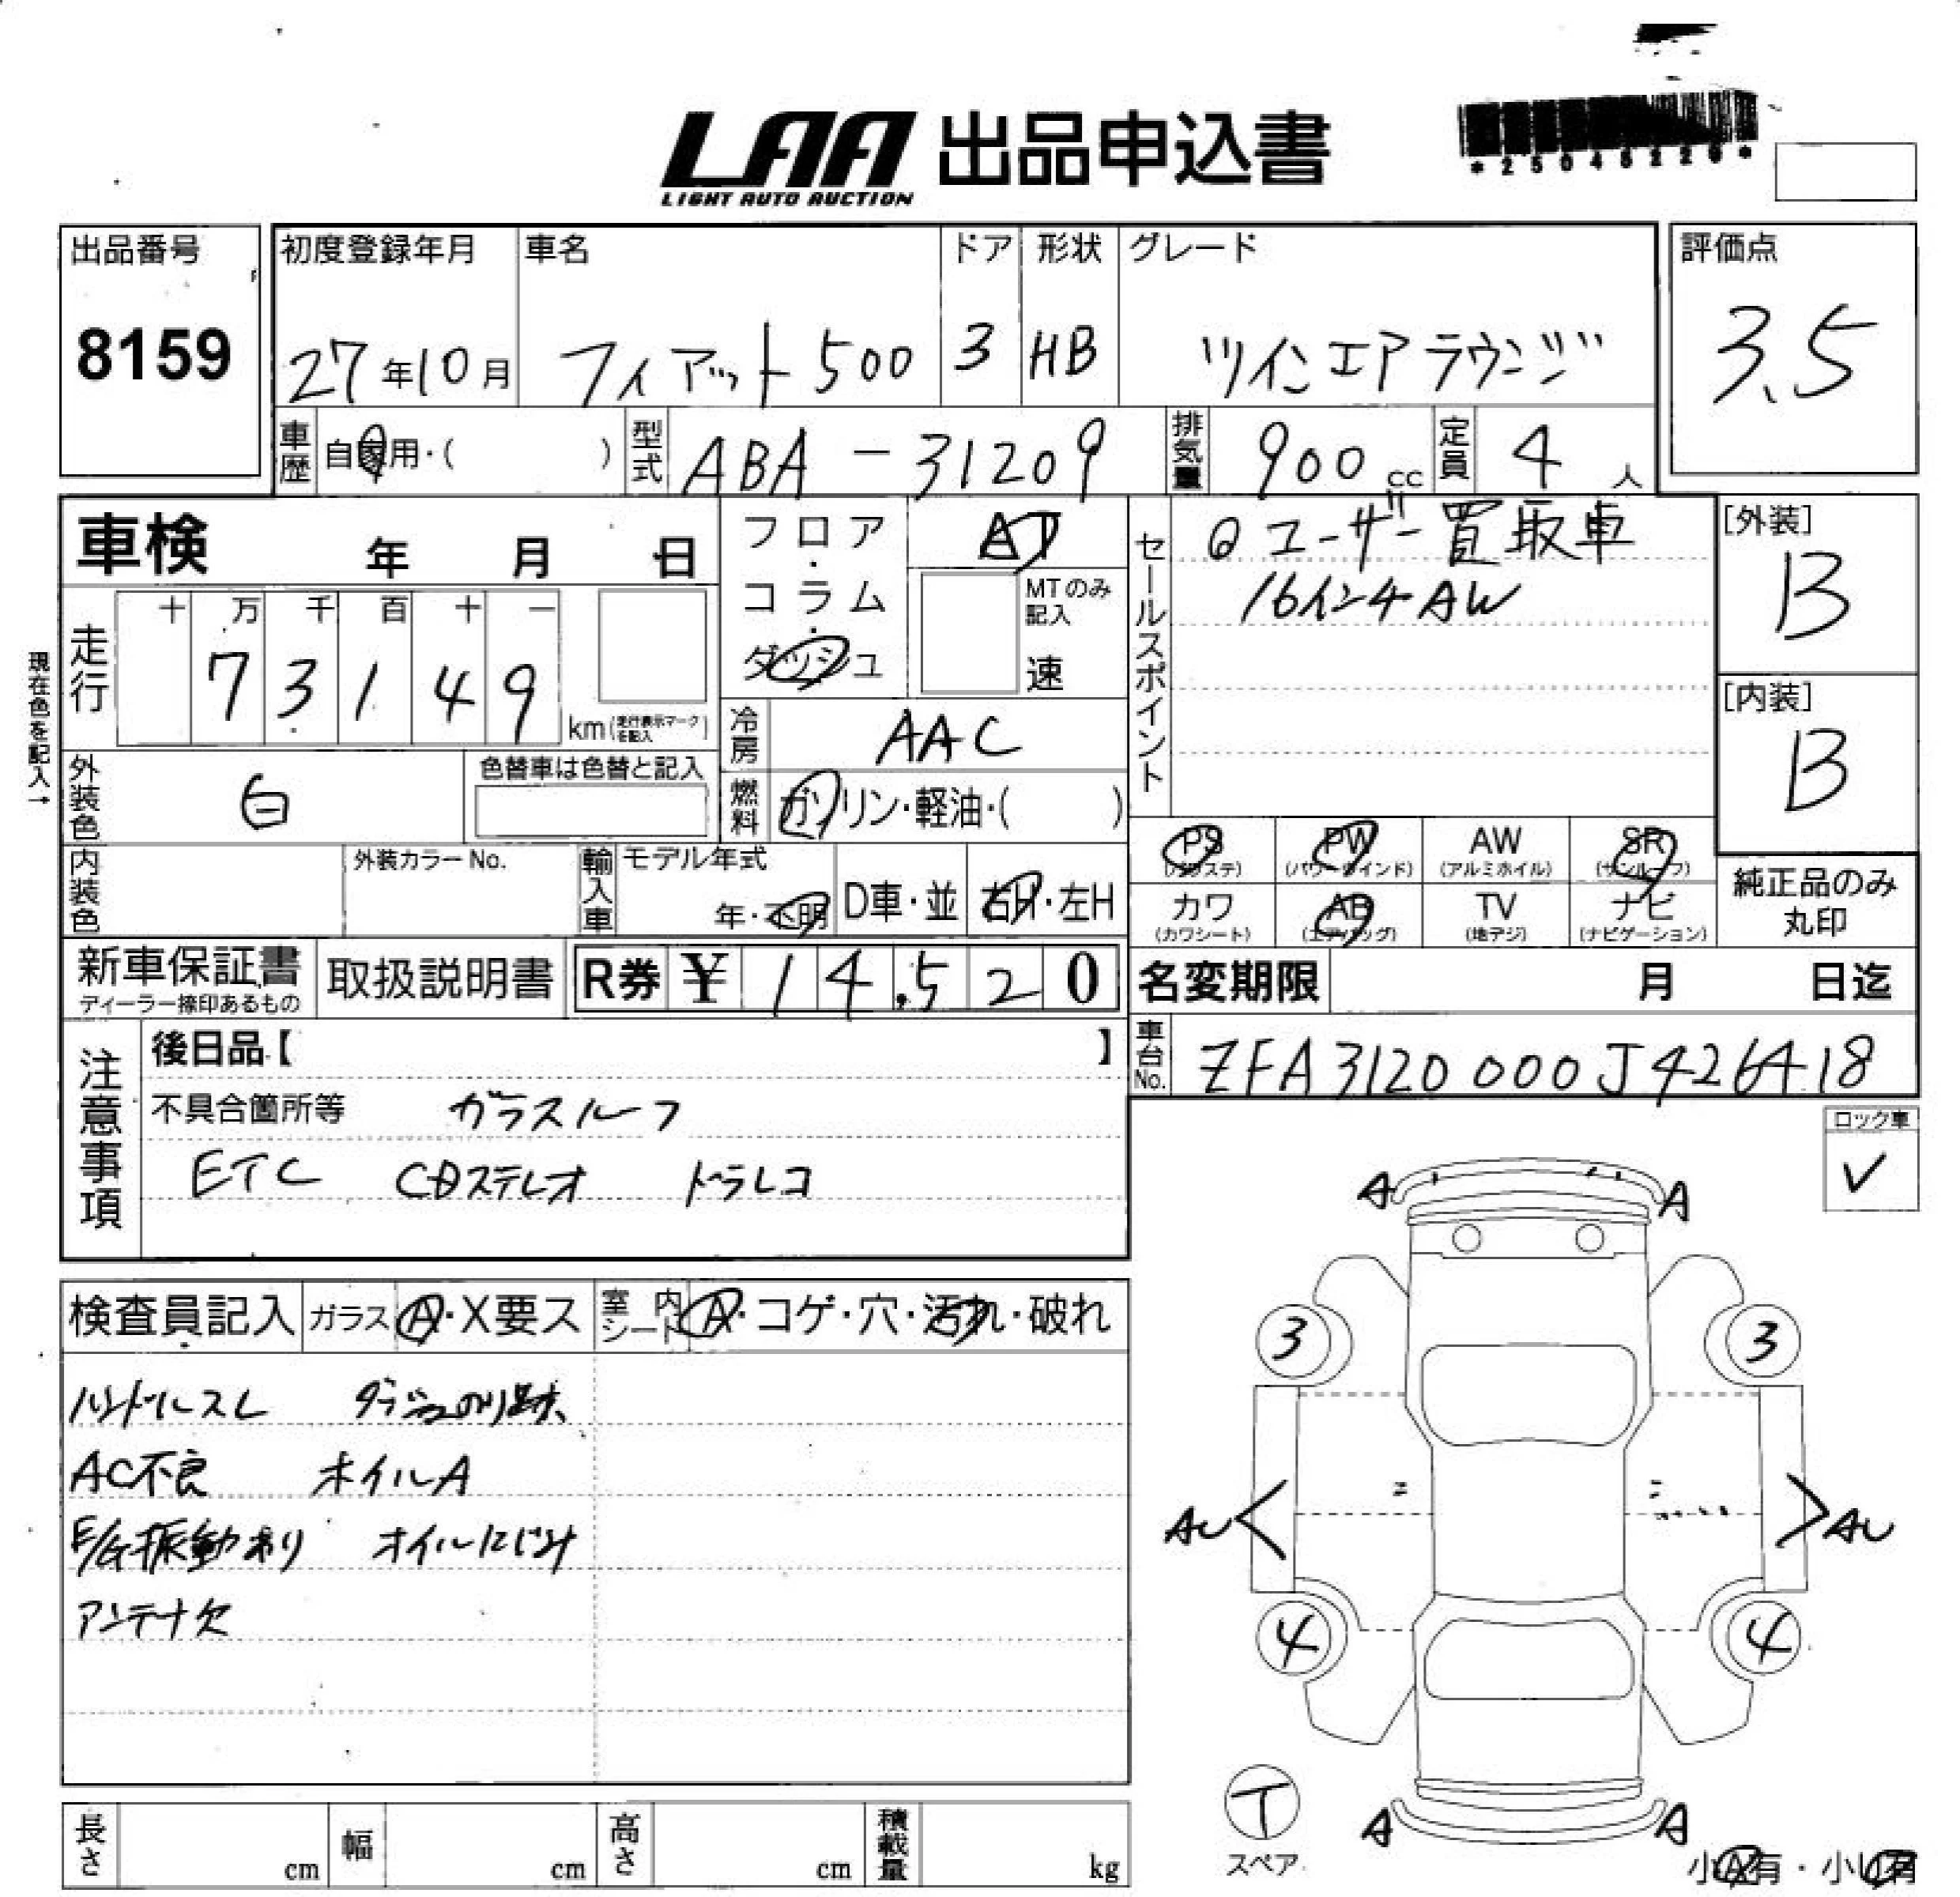 LAA 出品申込書
LIGHT AUTO AUCTION
*25046229*
出品番号
8159
初度登録年月
27年10月
車名
フィアット500
ドア
3
形状
HB
グレード
ツインエアラウンジ
評価点
3.5
車歴
自家用・( )
型式
ABA-31209
排気量
900cc
定員
4人
車検 年 月 日
走行
十 万 千 百 十 一
7 3 1 4 9
km(走行表示マークを記入)
現在色を記入→
外装色
白
色替車は色替と記入
内装色
外装カラーNo.
輸入車
モデル年式
年・不明
D車・並
右H・左H
フロア・コラム・ダッシュ
AT
MTのみ記入
速
冷房
AAC
燃料
ガソリン・軽油・( )
セールスポイント
◎ユーザー買取車
16インチAW
[外装]
B
[内装]
B
PS
(パワステ)
PW
(パワーウインド)
AW
(アルミホイル)
SR
(サンルーフ)
カワ
(カワシート)
AB
(エアバッグ)
TV
(地デジ)
ナビ
(ナビゲーション)
純正品のみ
丸印
新車保証書
ディーラー捺印あるもの
取扱説明書
R券 ¥14.520
名変期限 月 日迄
車台No.
ZFA3120000J426418
注意事項
後日品【 】
不具合箇所等 ガラスルーフ
ETC CDステレオ ドラレコ
ロック車
✓
検査員記入
ガラス
A・X要ス
室内シート
A・コゲ・穴・汚れ・破れ
ハンドルスレ ダッシュのり跡
AC不良 ホイルA
E/G振動有り オイルにじみ
アンテナ欠
A A
3 3
AU AU
4 4
A A
T
スペア
小A有・小U有
長さ cm
幅 cm
高さ cm
積載量 kg